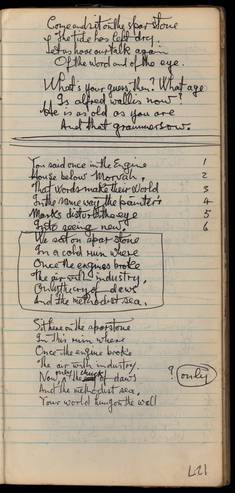 Come and sit on the spar stone
& The tide has left dry.
Let us have our talk again
Of the word and of the eye.
What's your guess, then? What age
Is alfred wallis now?
He is as old as you are
And that grammersow.
You said once in the Engine 1
House below Morvah, 2
That words make their world 3
In the same way the painter's 4
Marks disturb the eye 5
Into seeing new. 6
We sat on spar stone
In a cold ruin where
Once the engines broke
The air with industry,
the cry of daws
And the methodist sea.
Sit here on the spar stone
In this ruin where
Once the engine broke
The air with industry.
Now only the of daws ? only
And the methodist sea.
Your world hung on the wall
L21